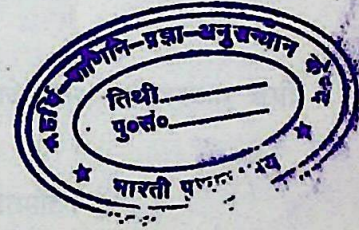 महर्षि-पाणिनि-प्रज्ञा-अनुसन्धान
तिथी
पु०सं०
भारती